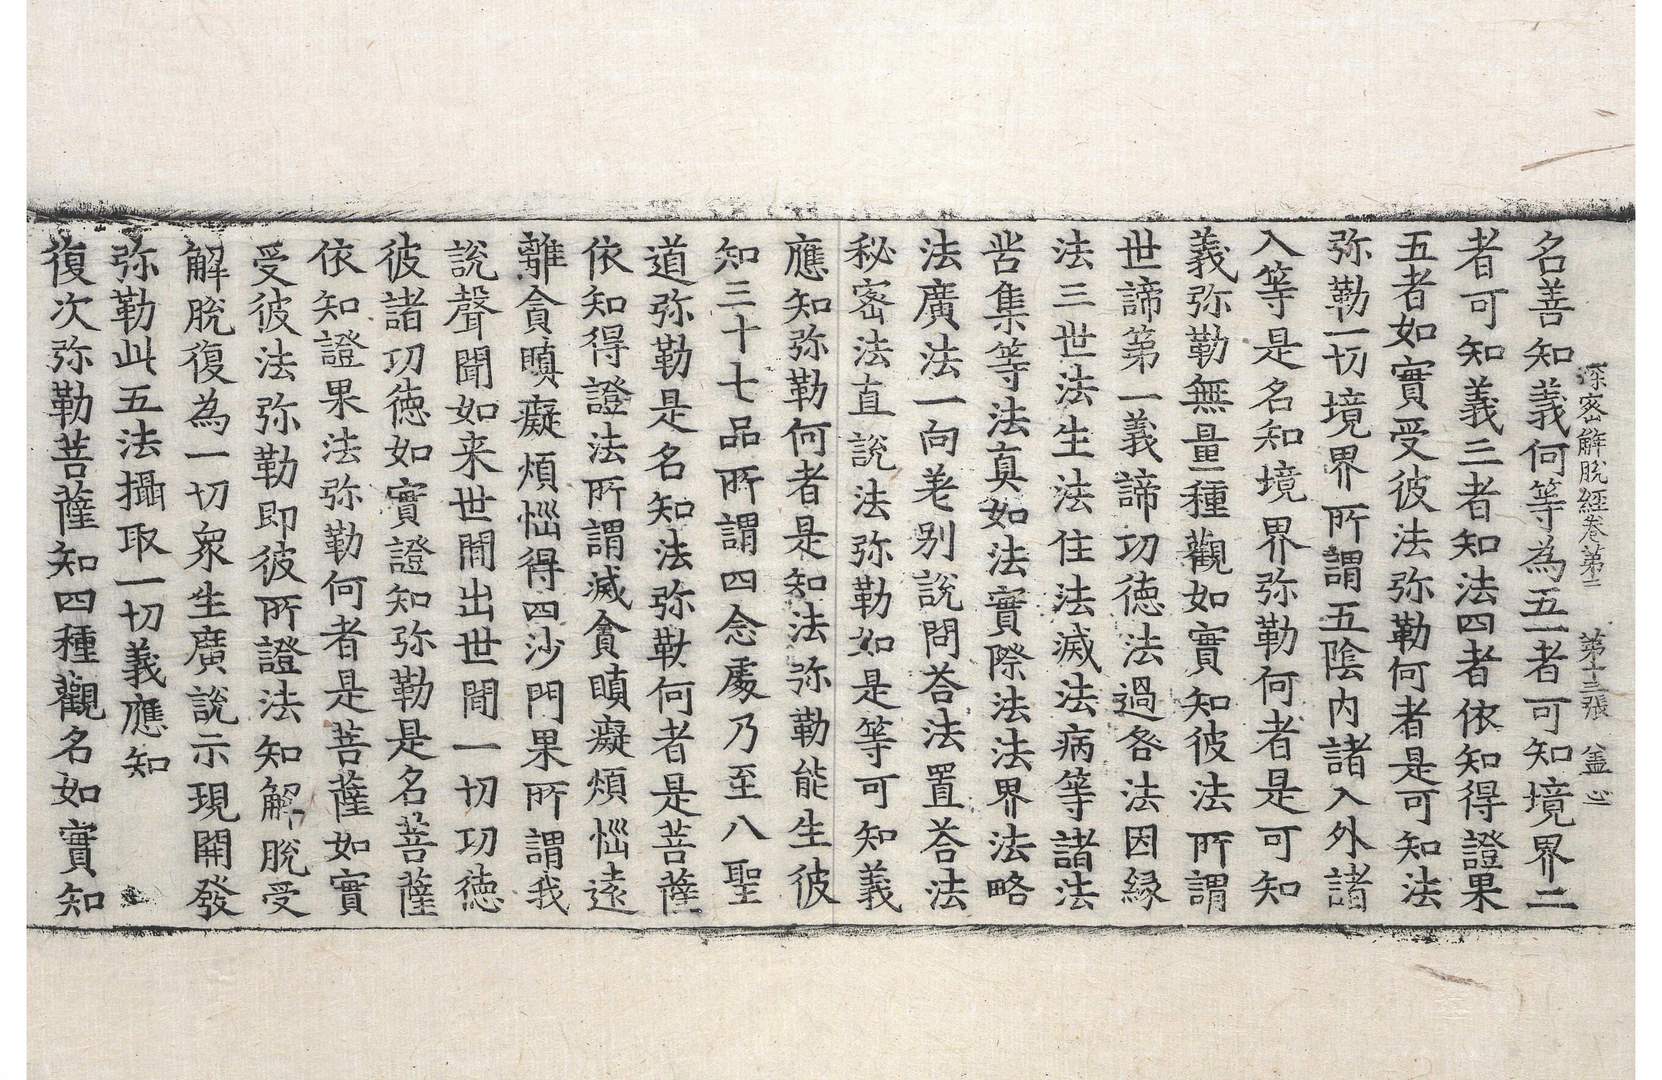 深密解脫經卷第三　第十三張　盖心
名善知義何等為五一者可知境界二
者可知義三者知法四者依知得證果
五者如實受彼法弥勒何者是可知法
弥勒一切境界所謂五陰內諸入外諸
入等是名知境界弥勒何者是可知
義弥勒無量種觀如實知彼法所謂
世諦第一義諦功德法過咎法因縁
法三世法生法住法滅法病等諸法
苦集等法真如法實際法法界法略
法廣法一向荖别說問荅法置荅法
秘密法直說法弥勒如是等可知義
應知弥勒何者是知法弥勒能生彼
知三十七品所謂四念處乃至八聖
道弥勒是名知法弥勒何者是菩薩
依知得證法所謂滅貪瞋癡煩惱遠
離貪瞋癡煩惱得四沙門果所謂我
說聲聞如来世間出世間一切功德
彼諸功徳如實證知弥勒是名菩薩
依知證果法弥勒何者是菩薩如實
受彼法弥勒即彼所證法知解脫受
解脫復為一切衆生廣說示現開發
弥勒此五法攝取一切義應知
復次弥勒菩薩知四種觀名如實知